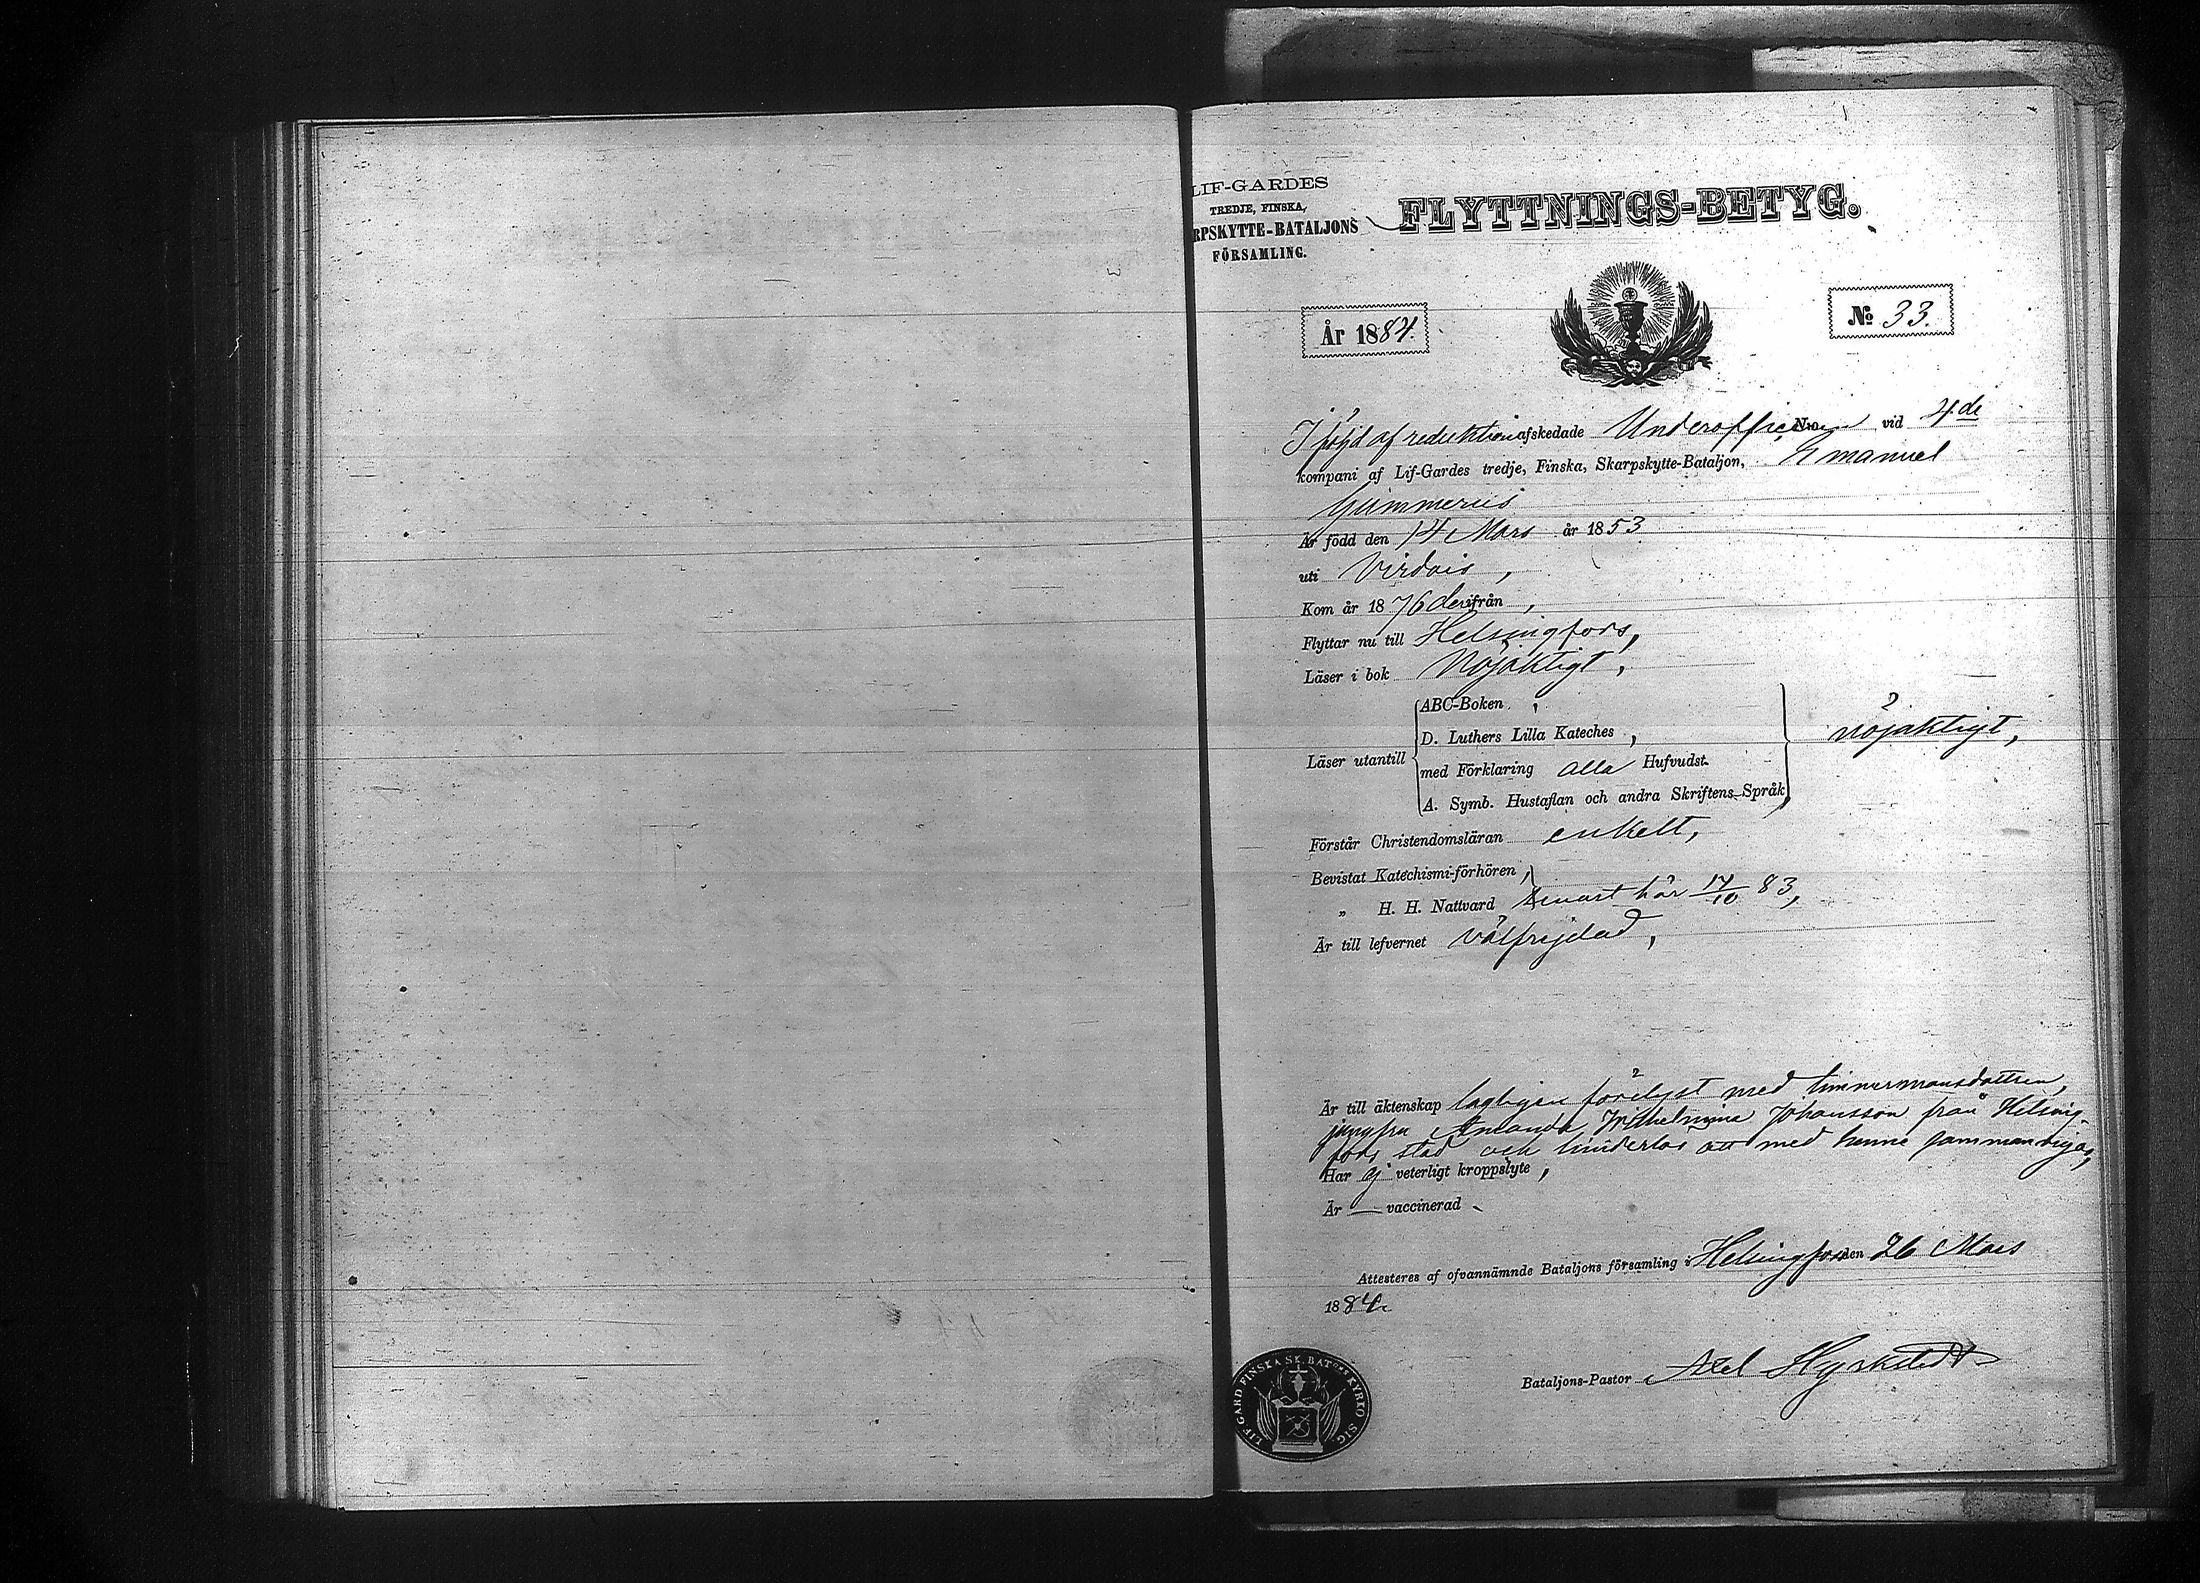 LIF-GARDES
TREDJE, FINSKA,
RPSKYTTE-BATALJONS
FÖRSAMLING.
FLYTTNINGS-BETYG.
År 1884.
№ 33.
I följd af reduktion afskedade Underofficeren No vid 4de
kompani af Lif-Gardes tredje, Finska, Skarpskytte-Bataljon, Emanuel
Gummerus
Är född den 14 Mars år 1853
uti Virdois,
Kom år 1876 derifrån,
Flyttar nu till Helsingfors,
Läser i bok Nöjaktigt,
ABC-Boken,
D. Luthers Lilla Kateches,
Läser utantill
med Förklaring alla Hufvudst.
A. Symb. Hustaflan och andra Skriftens Språk,
nöjaktigt,
Förstår Christendomsläran enkelt,
Bevistat Katechismi-förhören,
„ H. H. Nattvard senast här 17/10 83,
Är till lefvernet välfrejdad,
Är till äktenskap lagligen förelyst med timmermansdottren,
jungfru Amanda Wilhelmina Johansson från Helsing-
fors stad och hinderlös att med henne sammanvigas,
Har ej veterligt kroppslyte,
Är — vaccinerad
Attesteres af ofvannämnde Bataljons församling i Helsingfors den 26 Mars
1884.
Bataljons-Pastor Axel Hyrkstedt
LIF GARD FINSKA SK. BAT KYRKO SIG